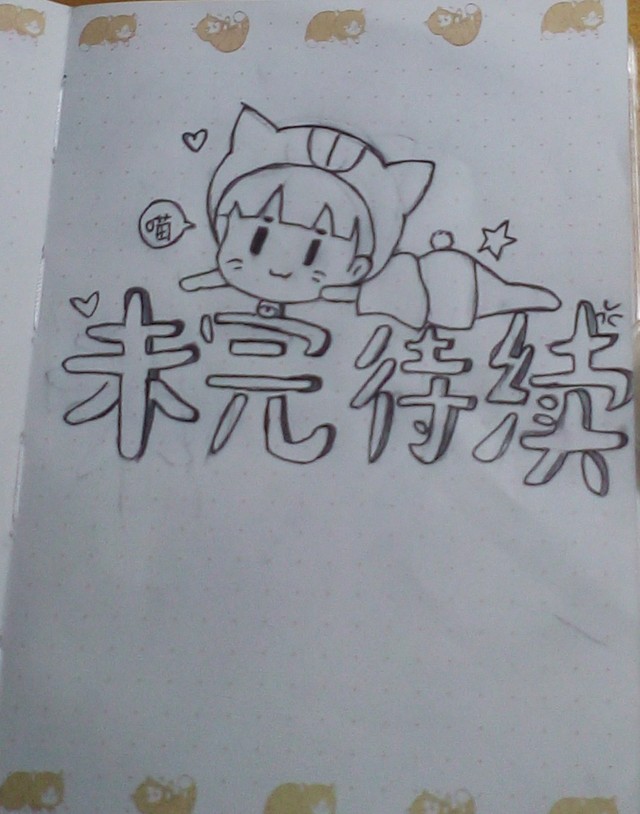 喵
未完待续